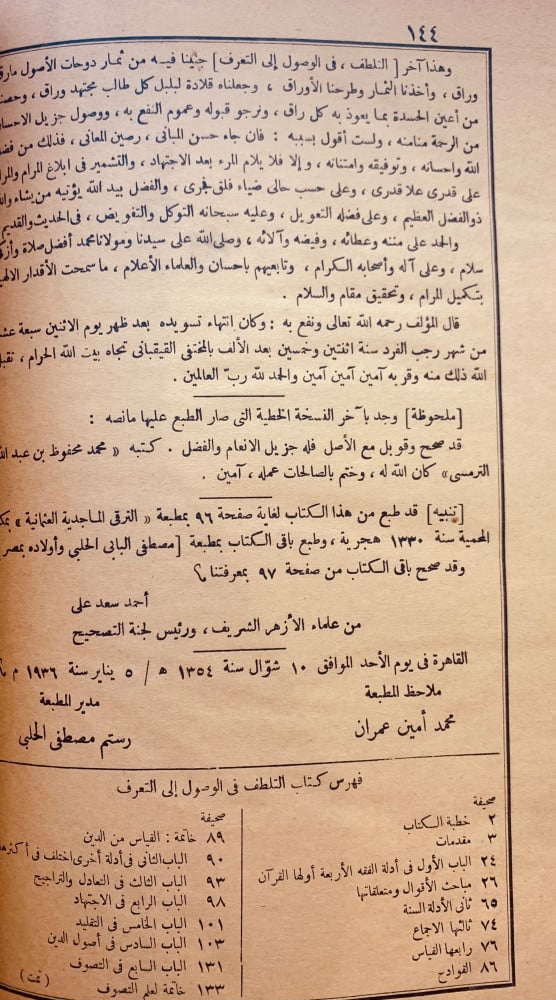 ١٤٤
وهذا آخر [ التلطف ، فى الوصول إلى التعرف ] جنينا فيه من ثمار دوحات الأصول
وراق ، وأخذنا الثمار وطرحنا الأوراق ، وجعلناه قلادة لبلبل كل طالب مجتهد وراق ،
من أعين الحسدة بما يعوذ به كل راق ، ونرجو قبوله وعموم النفع به ، ووصول جزيل
من الرحمة منامنه ، ولست أقول بسببه : فان جاء حسن المبانى ، رصين المعانى ، فذلك من
الله واحسانه ، وتوفيقه وامتنانه ، و إلا فلا يلام المرء بعد الاجتهاد ، والتشمير فى ابلاغ المرام
على قدرى علا قدرى ، وعلى حسب حالى ضياء فلق فجرى ، والفضل بيد الله يؤتيه من يشاء
ذوالفضل العظيم ، وعلى فضله التعويل ، وعليه سبحانه التوكل والتفويض ، فى الحديث والقديم
والحمد على مننه وعطائه ، وفيضه وآلائه ، وصلى الله على سيدنا ومولانا محمد أفضل صلاة
سلام ، وعلى آله وأصحابه الكرام ، وتابعيهم باحسان والعلماء الأعلام ، ما سمحت الأقدار
بتكميل المرام ، وتحقيق مقام والسلام .
قال المؤلف رحمه الله تعالى ونفع به : وكان إنتهاء تسويده بعد ظهر يوم الاثنين سبعة
من شهر رجب الفرد سنة اثنتين وخمسين بعد الألف بالمختفى القيقبانى تجاه بيت الله الحرام ،
الله ذلك منه وقربه آمين آمين آمين والحمد لله ربّ العالمين .
[ملحوظة] وجد بآخر النسخة الخطية التى صار الطبع عليها مانصه :
قد صحح وقوبل مع الأصل فله جزيل الانعام والفضل . كتبه « محمد محفوظ بن عبد
الترمسى» كان الله له ، وختم بالصالحات عمله ، آمين .
[تنبيه] قد طبع من هذا الكتاب لغاية صفحة ٩٦ بمطبعة « الترقى الماجدية العثمانية »
المحمية سنة ١٣٣٠ هجرية ، وطبع باقى الكتاب بمطبعة [مصطفى البابى الحلبى وأولاده بمصر
وقد صحح باقى الكتاب من صفحة ٩٧ بمعرفتنا م
أحمد سعد على
من علماء الأزهر الشريف ، ورئيس لجنة التصحيح
القاهرة فى يوم الأحد الموافق ١٠ شوّال سنة ١٣٥٤ ھ / ٥ يناير سنة ١٩٣٦ م
ملاحظ المطبعة
مدير المطبعة
محمد أمين عمران
رستم مصطفى الحلبى
فهرس كتاب التلطف فى الوصول إلى التعرف
صحيفة
٢ خطبة الكتاب
٣ مقدمات
٢٤ الباب الأول فى أدلة الفقه الأربعة أولها القرآن
٢٦ مباحث الأقوال ومتعلقاتها
٦٥ ثانى الأدلة السنة
٧٤ ثالثها الاجماع
٧٦ رابعها القياس
٨٦ القوادح
صحيفة
٨٩ خاتمة : القياس من الدين
٩٠ الباب الثانى فى أدلة أخرى اختلف فى
٩٣ الباب الثالث فى التعادل والتراجيح
٩٨ الباب الرابع فى الاجتهاد
١٠١ الباب الخامس فى التقليد
١٠٣ الباب السادس فى أصول الدين
١٣١ الباب السابع فى التصوف
١٣٣ خاتمة لعلم التصوف
( تمت )